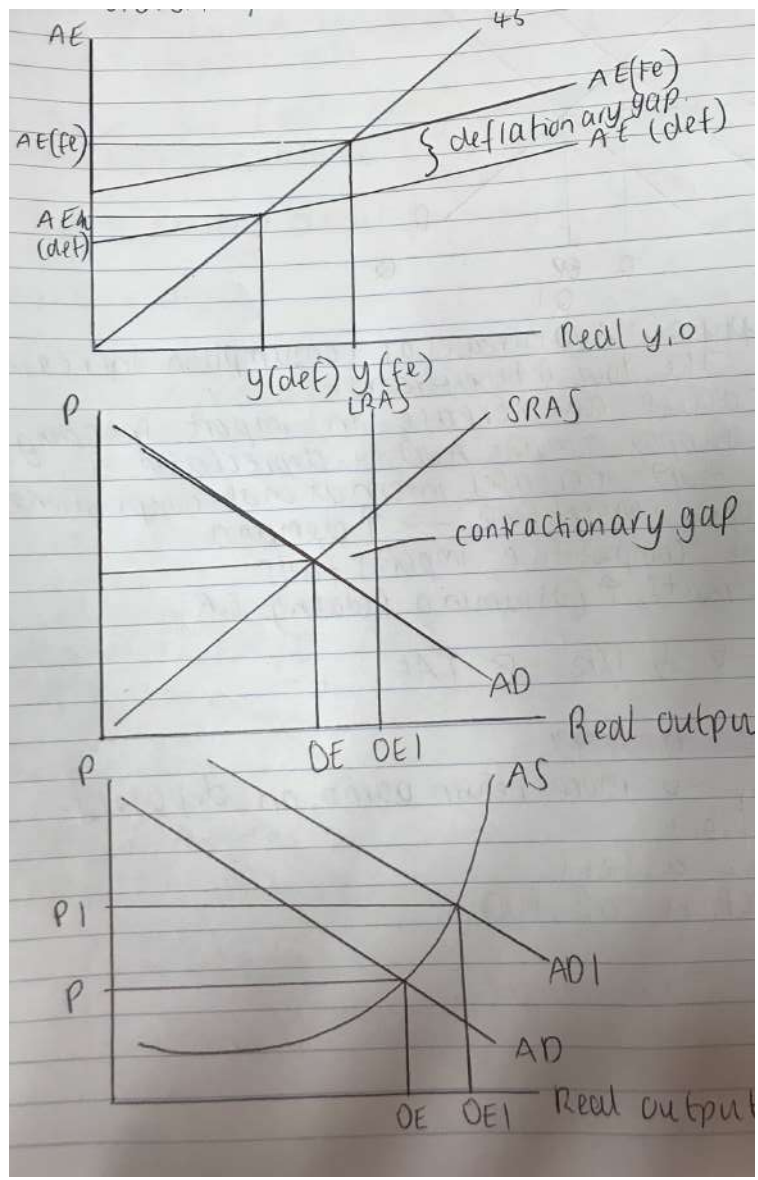 AE
45
AE(Fe)
deflationary gap
AE(fe)
AE (def)
AE
(def)
Real y,O
y(def) y(fe)
P
LRAS
SRAS
contractionary gap
AD
Real output
OE OE1
P
AS
P1
P
AD1
AD
OE OE1 Real output